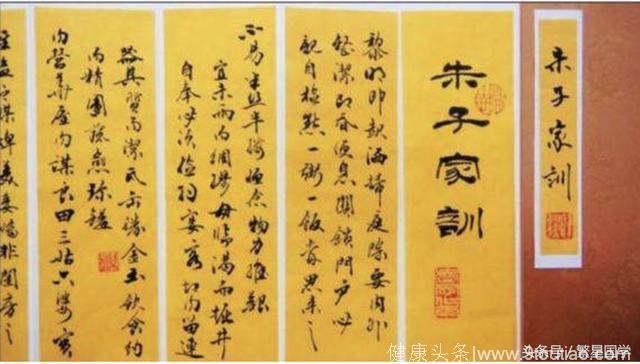 朱子家訓
朱子家訓
黎明即起洒掃庭除要內外
整潔即昏便息關鎖門戶必
親自檢點一粥一飯當思來之
不易半絲半縷恒念物力維艱
宜未雨而綢繆毋臨渴而掘井
自奉必須儉約宴客切勿留連
器具質而潔瓦缶勝金玉飲食約
而精園蔬愈珍饈
勿營華屋勿謀良田三姑六婆實
淫盜之媒婢美妾嬌非閨房之
健康头条/www.9stoutiao.com
头条号/繁星国学